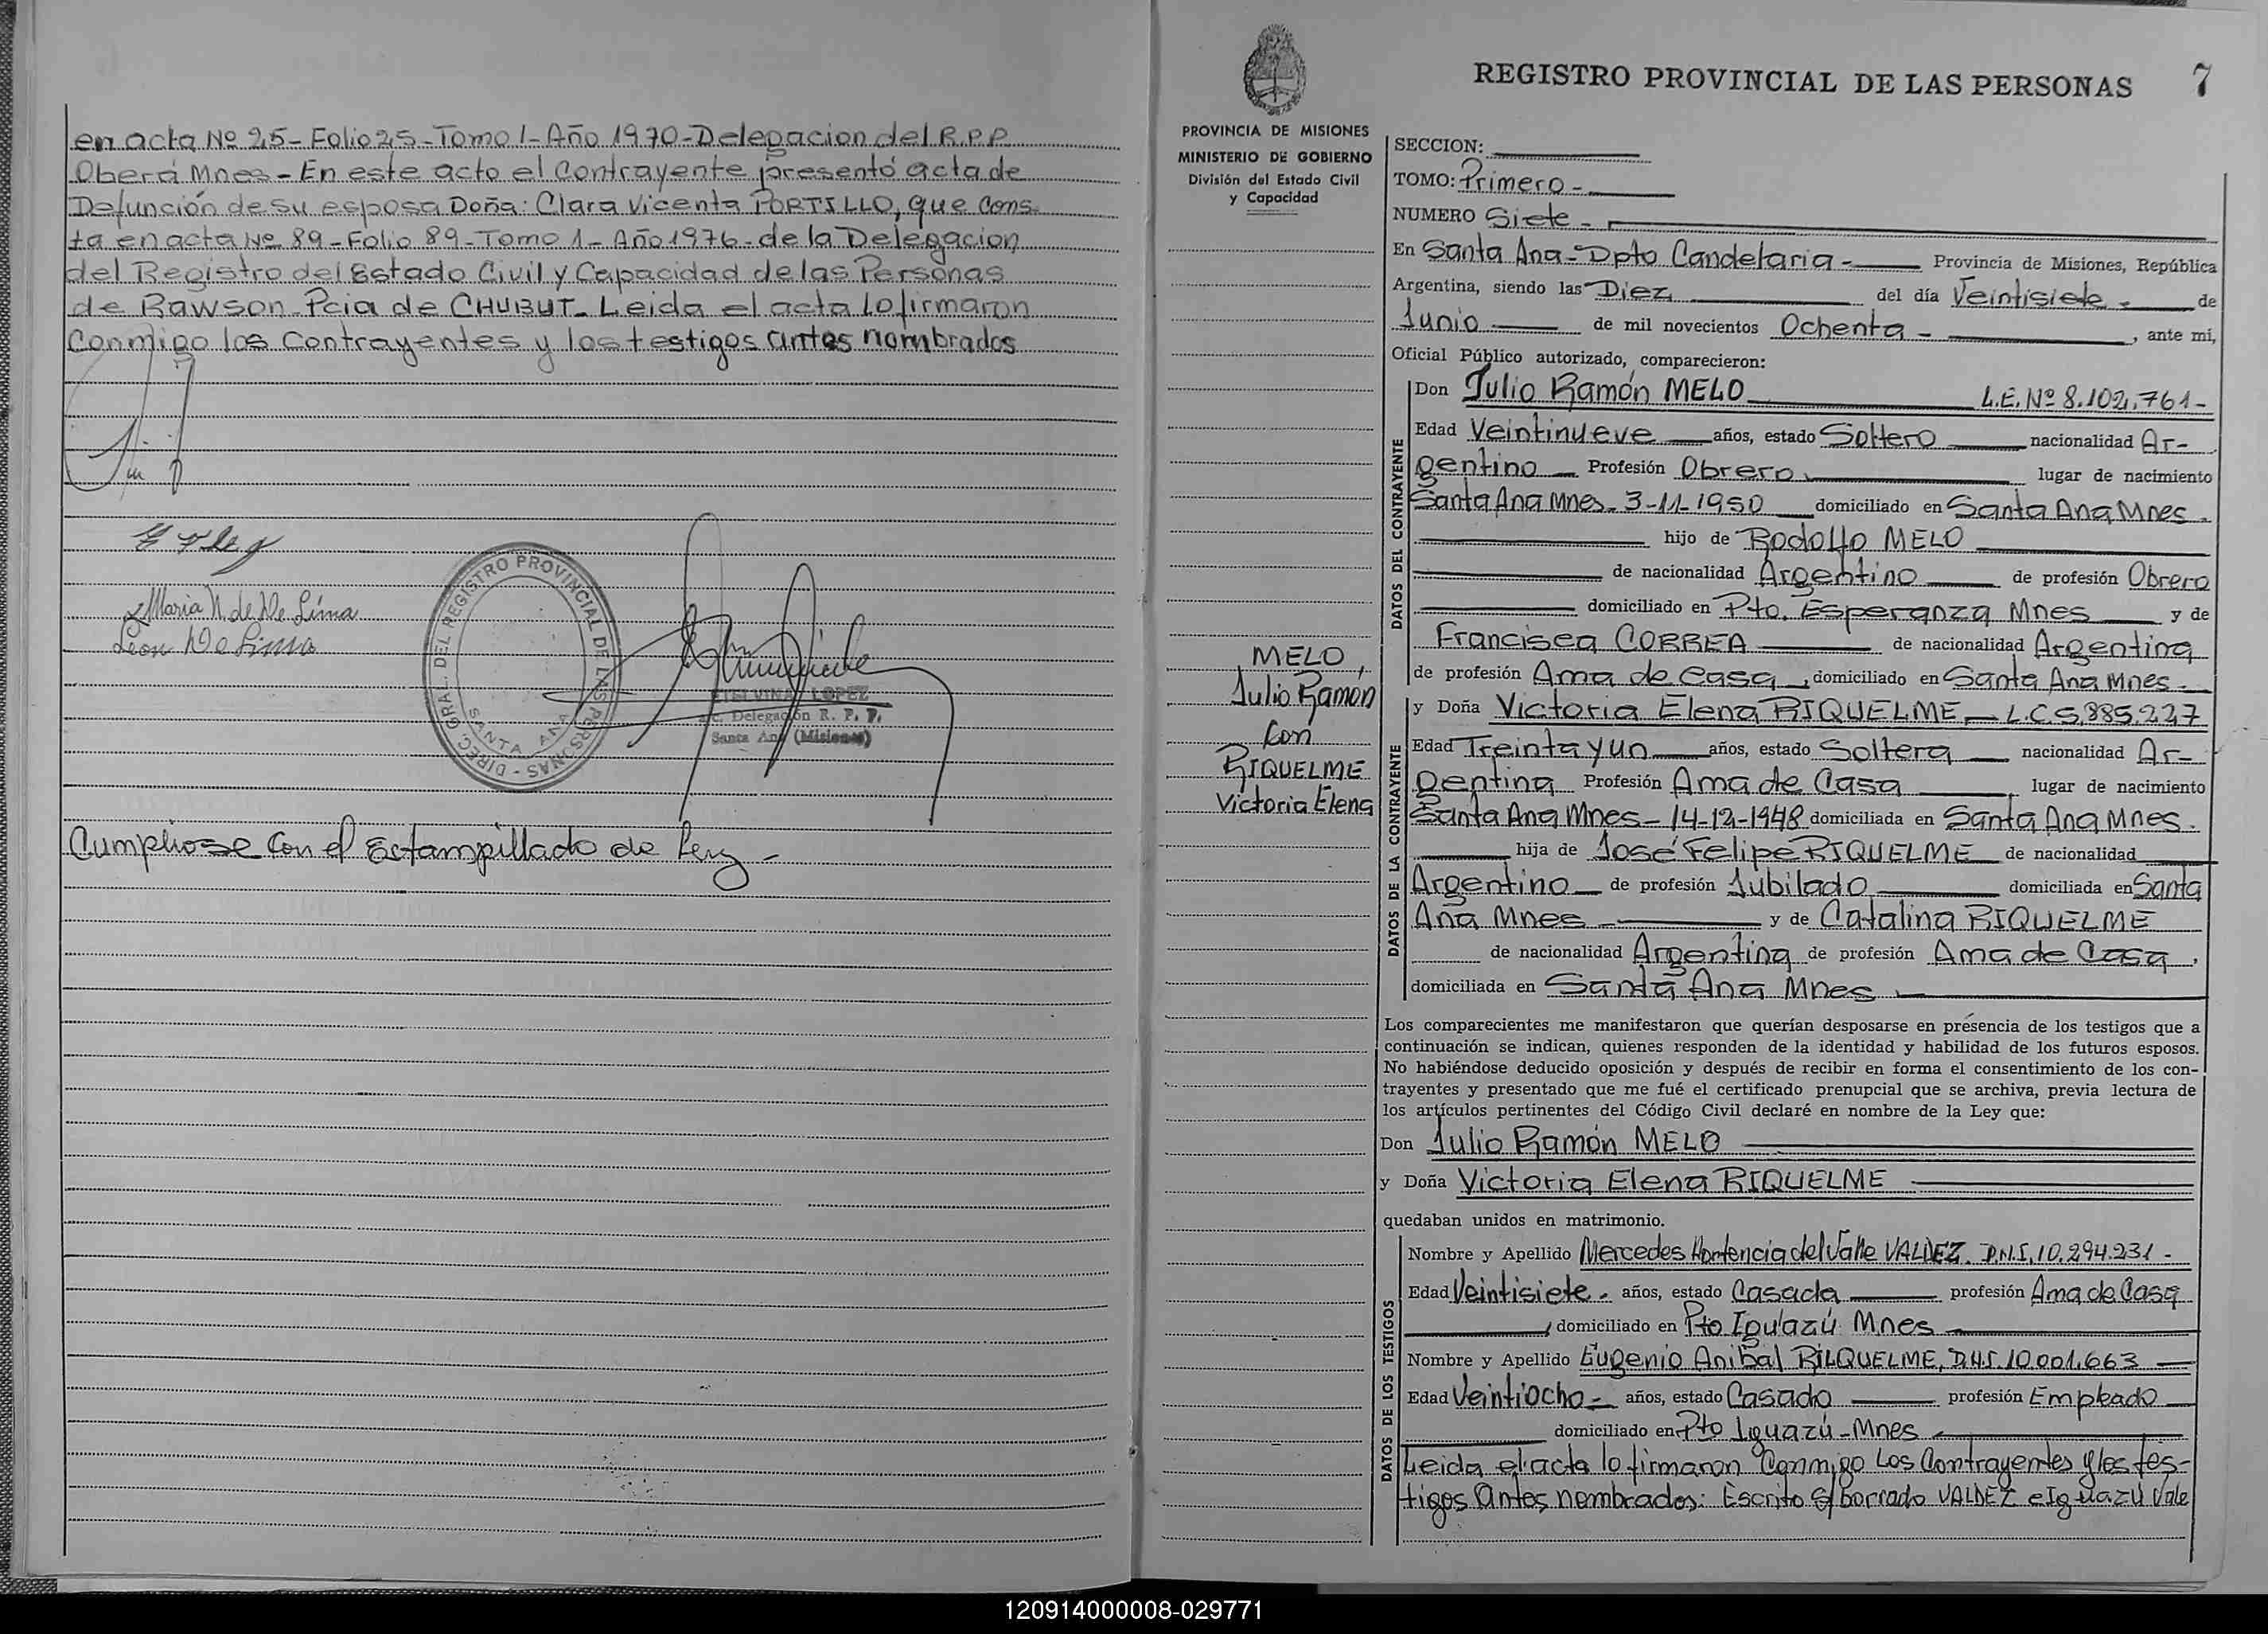 en acta Nº 25 - Folio 25 - Tomo 1 - Año 1970 - Delegacion del R.P.P.
Oberá Mnes - En este acto el Contrayente presentó acta de
Defunción de su esposa Doña: Clara Vicenta PORTILLO, que cons
ta en acta Nº 89 - Folio 89 - Tomo 1 - Año 1976 - de la Delegacion
del Registro del Estado Civil y Capacidad de las Personas
de Rawson - Pcia de CHUBUT - Leida el acta lo firmaron
Conmigo los Contrayentes y los testigos antes nombrados
Maria N. de De Lima
Leon De Lima
DIREC. GRAL. DEL REGISTRO PROVINCIAL DE LAS PERSONAS - SANTA ANA
ETELVINA LOPEZ
Delegación R. P. P.
Santa Ana (Misiones)
Cumpliose Con el Estampillado de Ley -
REGISTRO PROVINCIAL DE LAS PERSONAS 7
PROVINCIA DE MISIONES
MINISTERIO DE GOBIERNO
División del Estado Civil
y Capacidad
MELO,
Julio Ramon
Con
RIQUELME
Victoria Elena
SECCION:
TOMO: Primero -
NUMERO Siete -
En Santa Ana - Dpto Candelaria - Provincia de Misiones, República
Argentina, siendo las Diez del día Veintisiete - de
Junio de mil novecientos Ochenta - , ante mi,
Oficial Público autorizado, comparecieron:
DATOS DEL CONTRAYENTE
Don Julio Ramón MELO L.E. Nº 8.102.761 -
Edad Veintinueve años, estado Soltero nacionalidad Ar-
gentino Profesión Obrero lugar de nacimiento
Santa Ana Mnes - 3-11-1950 domiciliado en Santa Ana Mnes -
hijo de Rodolfo MELO
de nacionalidad Argentino de profesión Obrero
domiciliado en Pto. Esperanza Mnes y de
Francisca CORREA de nacionalidad Argentina
de profesión Ama de Casa, domiciliado en Santa Ana Mnes -
DATOS DE LA CONTRAYENTE
y Doña Victoria Elena RIQUELME - L.C 5.885.227
Edad Treinta y un años, estado Soltera nacionalidad Ar-
gentina Profesión Ama de Casa lugar de nacimiento
Santa Ana Mnes - 14-12-1948 domiciliada en Santa Ana Mnes -
hija de José Felipe RIQUELME de nacionalidad
Argentino de profesión Jubilado domiciliada en Santa
Ana Mnes y de Catalina RIQUELME
de nacionalidad Argentina de profesión Ama de Casa,
domiciliada en Santa Ana Mnes
Los comparecientes me manifestaron que querían desposarse en presencia de los testigos que a
continuación se indican, quienes responden de la identidad y habilidad de los futuros esposos.
No habiéndose deducido oposición y después de recibir en forma el consentimiento de los con-
trayentes y presentado que me fué el certificado prenupcial que se archiva, previa lectura de
los artículos pertinentes del Código Civil declaré en nombre de la Ley que:
Don Julio Ramón MELO
y Doña Victoria Elena RIQUELME
quedaban unidos en matrimonio.
DATOS DE LOS TESTIGOS
Nombre y Apellido Mercedes Hortencia del Valle VALDEZ. D.N.I. 10.294.231 -
Edad Veintisiete - años, estado Casada profesión Ama de Casa
domiciliado en Pto Iguazú Mnes
Nombre y Apellido Eugenio Anibal RILQUELME, D.N.I. 10.001.663
Edad Veintiocho - años, estado Casado profesión Empleado
domiciliado en Pto Iguazú - Mnes
Leida el acta lo firmaron Conmigo Los Contrayentes y los tes-
tigos antes nombrados: Escrito S/borrado VALDEZ e Iguazú Vale
120914000008-029771